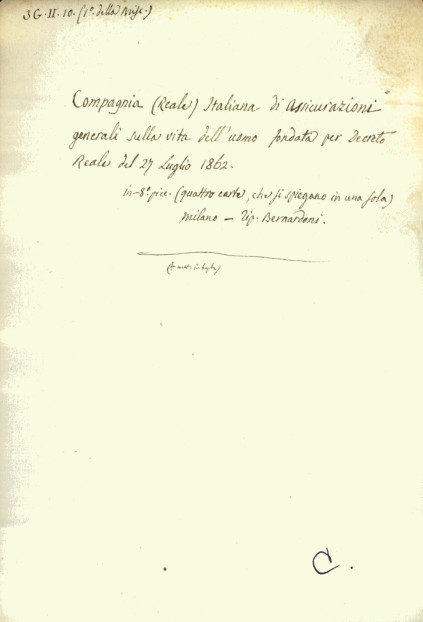 3G.II.10. (1ª. della Misc.)
Compagnia (Reale) Italiana di Assicurazioni
generali sulla vita dell'uomo fondata per Decreto
Reale del 27 Luglio 1862.
in-8°. picc. (quattro carte, che si spiegano in una sola)
Milano — Tip. Bernardoni.
C.